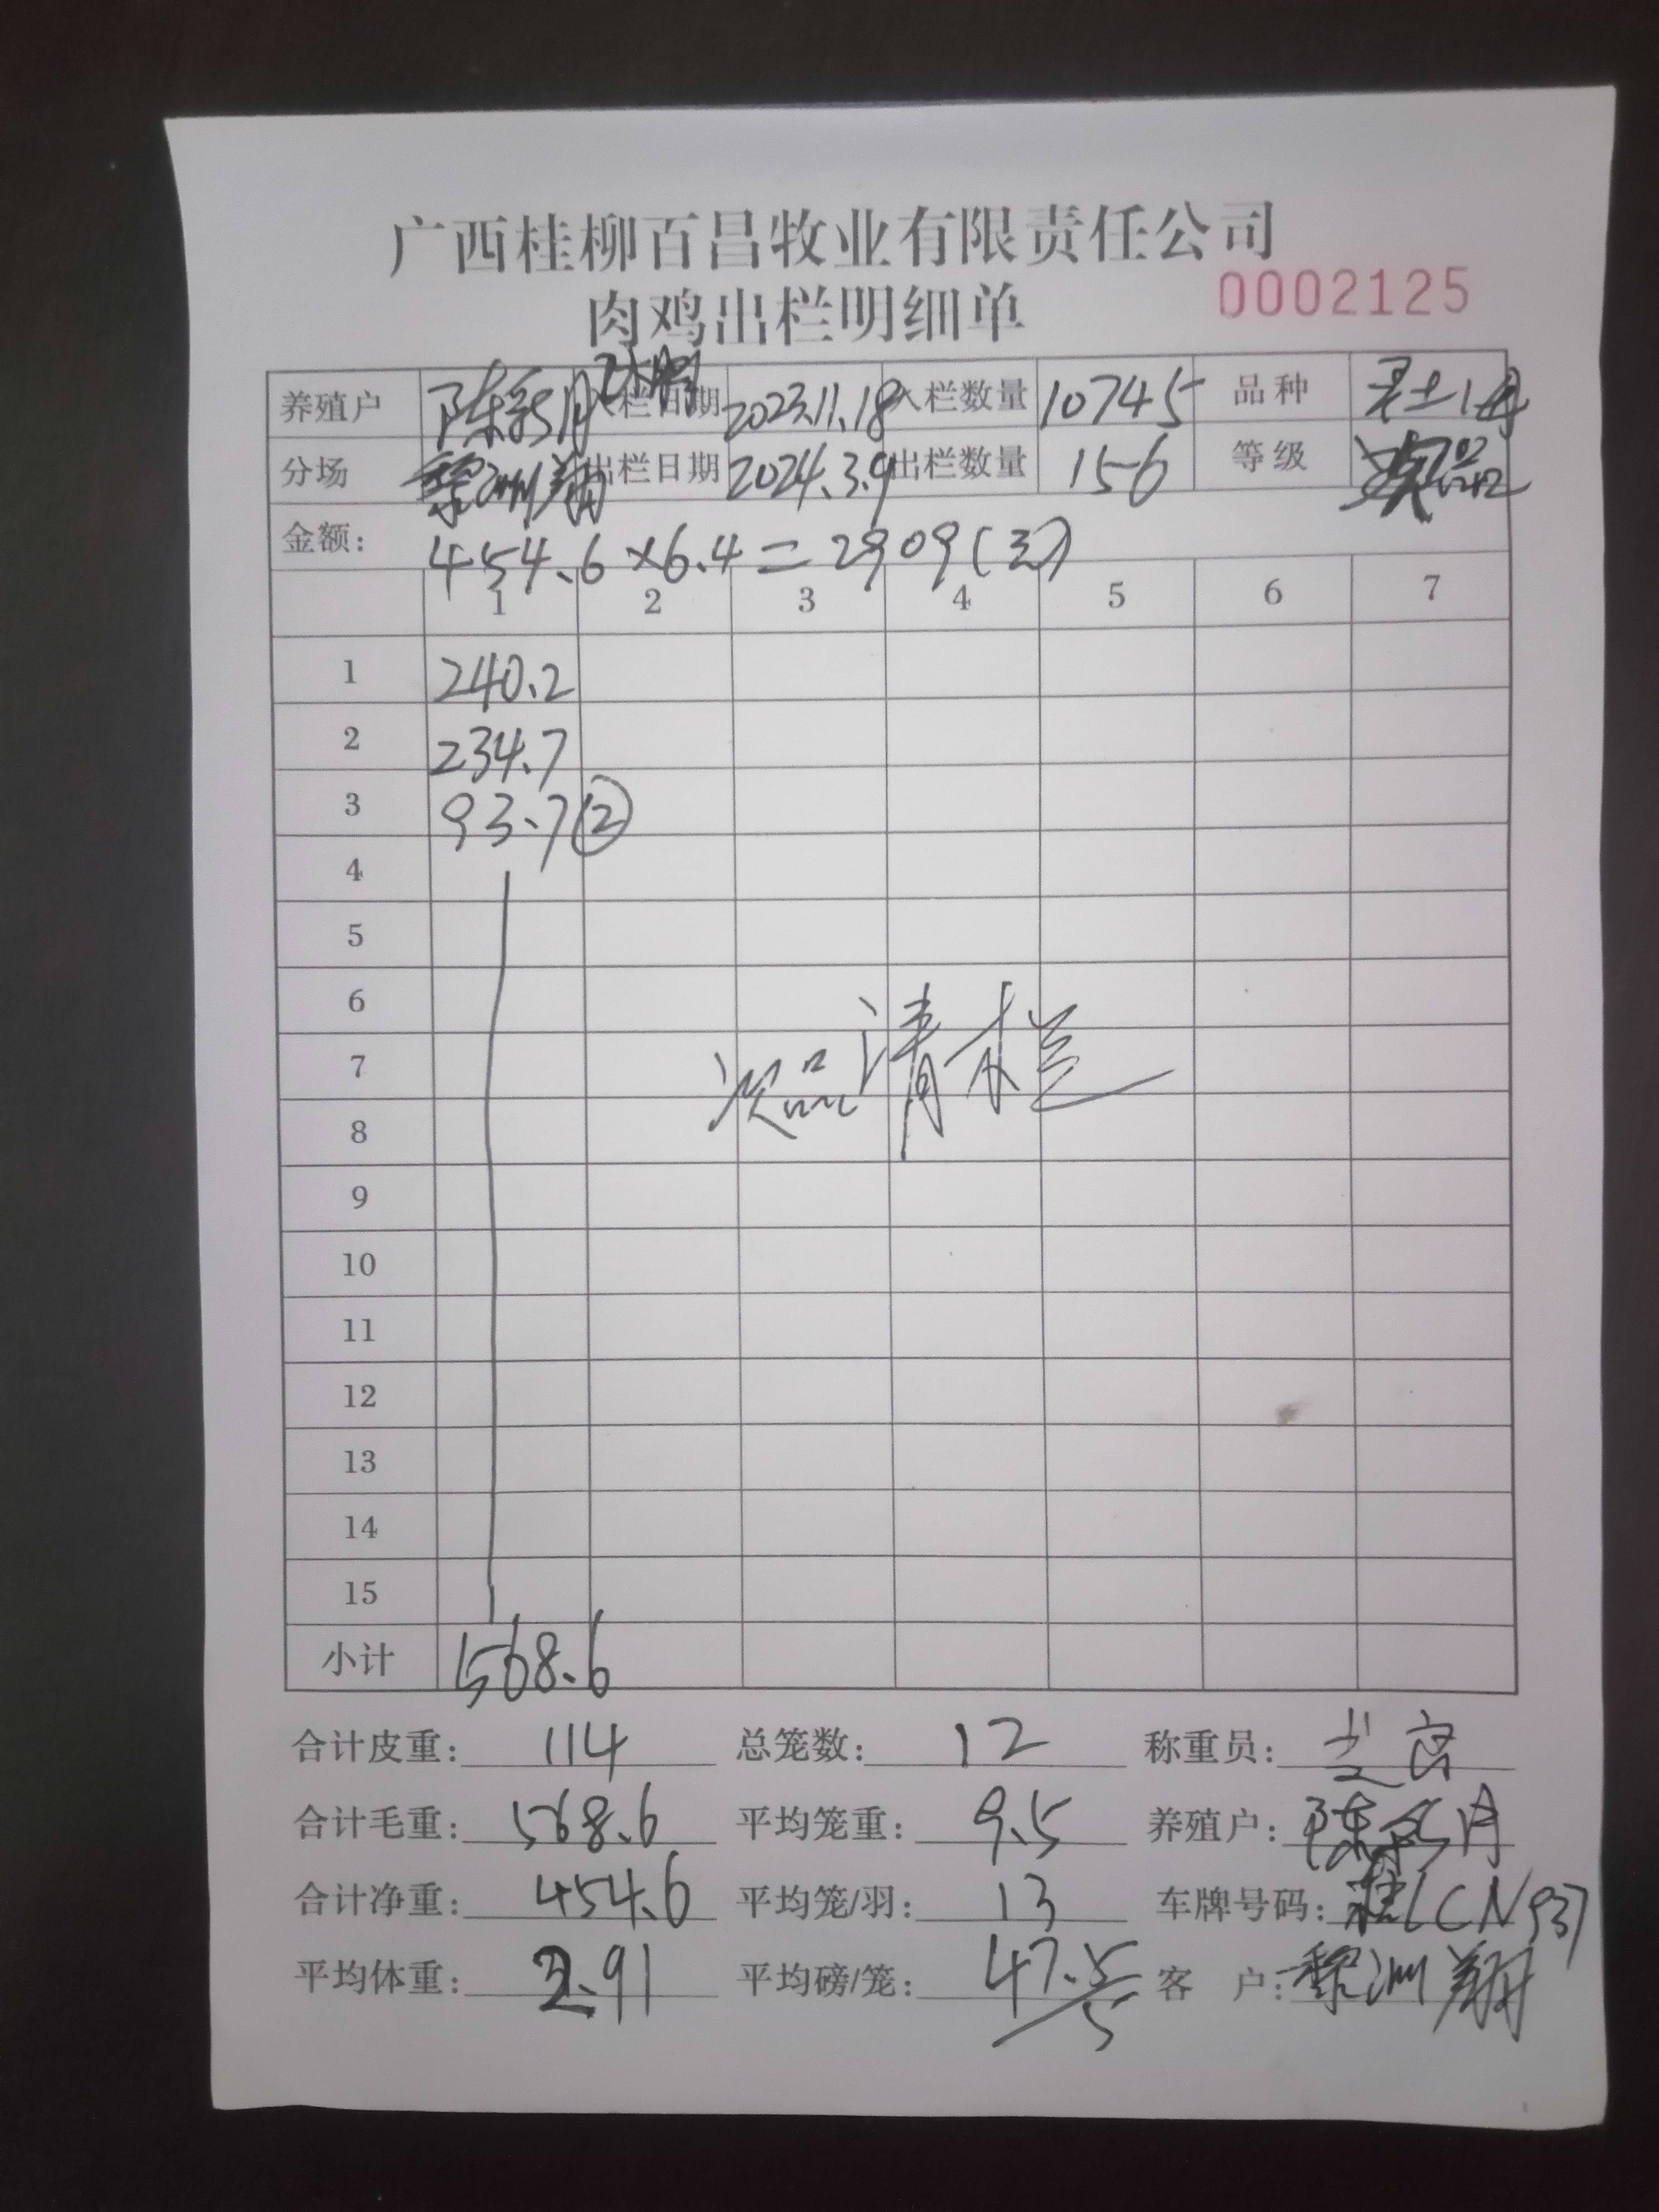 广西桂柳百昌牧业有限责任公司
肉鸡出栏明细单 0002125
养殖户 陈彩月 入栏日期 2023.11.18 入栏数量 10745 品种 灵土1母
分场 黎洲翔 出栏日期 2024.3.9 出栏数量 156 等级 次品
金额: 454.6×6.4=2909(元)
1 2 3 4 5 6 7
1 240.2
2 234.7
3 93.7②
4
5
6
次品清栏
7
8
9
10
11
12
13
14
15
小计 568.6
合计皮重: 114 总笼数: 12 称重员:
合计毛重: 568.6 平均笼重: 9.5 养殖户: 陈彩月
合计净重: 454.6 平均笼/羽: 13 车牌号码: 桂LCN937
平均体重: 2.91 平均磅/笼: 47.5/5 客 户: 黎洲翔